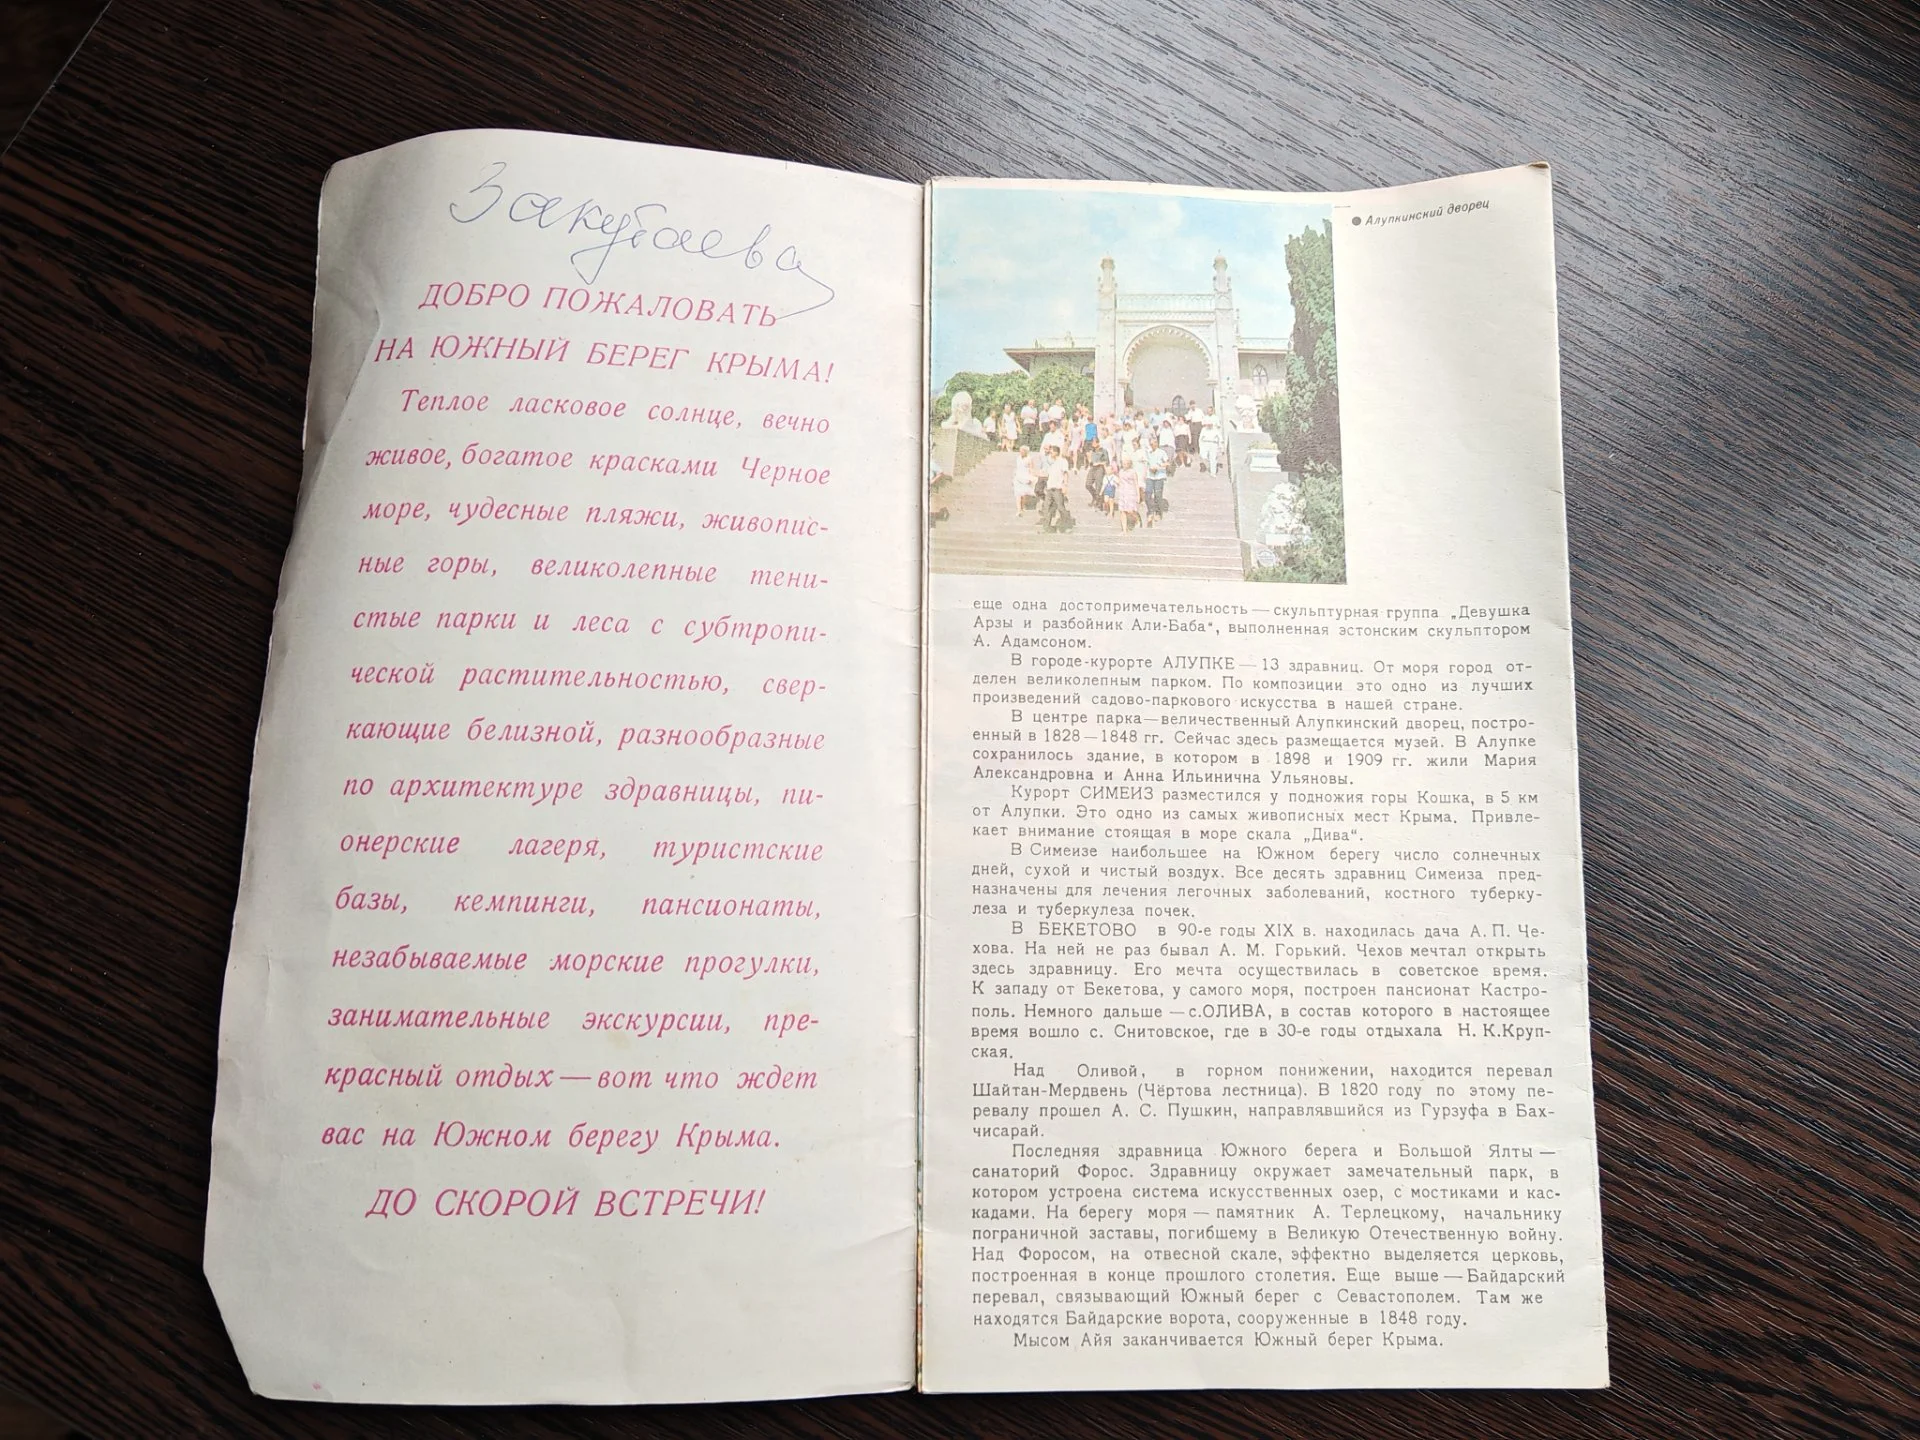 Закутаева
ДОБРО ПОЖАЛОВАТЬ
НА ЮЖНЫЙ БЕРЕГ КРЫМА!
Теплое ласковое солнце, вечно
живое, богатое красками Черное
море, чудесные пляжи, живопис-
ные горы, великолепные тени-
стые парки и леса с субтропи-
ческой растительностью, свер-
кающие белизной, разнообразные
по архитектуре здравницы, пи-
онерские лагеря, туристские
базы, кемпинги, пансионаты,
незабываемые морские прогулки,
занимательные экскурсии, пре-
красный отдых — вот что ждет
вас на Южном берегу Крыма.
ДО СКОРОЙ ВСТРЕЧИ!
● Алупкинский дворец
еще одна достопримечательность — скульптурная группа „Девушка
Арзы и разбойник Али-Баба“, выполненная эстонским скульптором
А. Адамсоном.
В городе-курорте АЛУПКЕ — 13 здравниц. От моря город от-
делен великолепным парком. По композиции это одно из лучших
произведений садово-паркового искусства в нашей стране.
В центре парка — величественный Алупкинский дворец, постро-
енный в 1828 — 1848 гг. Сейчас здесь размещается музей. В Алупке
сохранилось здание, в котором в 1898 и 1909 гг. жили Мария
Александровна и Анна Ильинична Ульяновы.
Курорт СИМЕИЗ разместился у подножия горы Кошка, в 5 км
от Алупки. Это одно из самых живописных мест Крыма. Привле-
кает внимание стоящая в море скала „Дива“.
В Симеизе наибольшее на Южном берегу число солнечных
дней, сухой и чистый воздух. Все десять здравниц Симеиза пред-
назначены для лечения легочных заболеваний, костного туберку-
леза и туберкулеза почек.
В БЕКЕТОВО в 90-е годы XIX в. находилась дача А. П. Че-
хова. На ней не раз бывал А. М. Горький. Чехов мечтал открыть
здесь здравницу. Его мечта осуществилась в советское время.
К западу от Бекетова, у самого моря, построен пансионат Кастро-
поль. Немного дальше — с. ОЛИВА, в состав которого в настоящее
время вошло с. Снитовское, где в 30-е годы отдыхала Н. К. Круп-
ская.
Над Оливой, в горном понижении, находится перевал
Шайтан-Мердвень (Чёртова лестница). В 1820 году по этому пе-
ревалу прошел А. С. Пушкин, направлявшийся из Гурзуфа в Бах-
чисарай.
Последняя здравница Южного берега и Большой Ялты —
санаторий Форос. Здравницу окружает замечательный парк, в
котором устроена система искусственных озер, с мостиками и кас-
кадами. На берегу моря — памятник А. Терлецкому, начальнику
пограничной заставы, погибшему в Великую Отечественную войну.
Над Форосом, на отвесной скале, эффектно выделяется церковь,
построенная в конце прошлого столетия. Еще выше — Байдарский
перевал, связывающий Южный берег с Севастополем. Там же
находятся Байдарские ворота, сооруженные в 1848 году.
Мысом Айя заканчивается Южный берег Крыма.